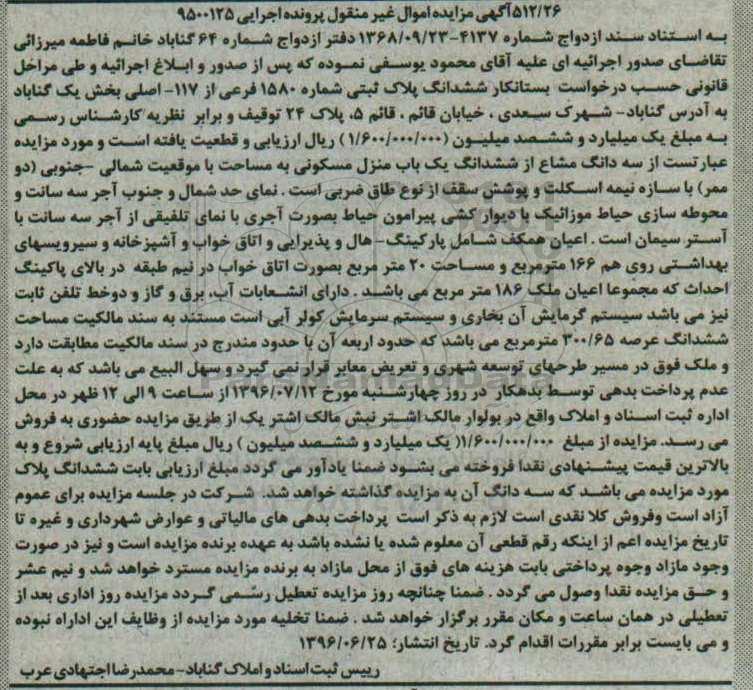 ۵۱۲/۲۶آگهی مزایده اموال غیر منقول پرونده اجرایی ۹۵۰۰۱۲۵
به استناد سند ازدواج شماره ۴۱۳۷-۱۳۶۸/۰۹/۲۳ دفتر ازدواج شماره ۶۴ گناباد خانم فاطمه میرزائی
تقاضای صدور اجرائیه ای علیه آقای محمود یوسفی نموده که پس از صدور و ابلاغ اجرائیه و طی مراحل
قانونی حسب درخواست بستانکار ششدانگ پلاک ثبتی شماره ۱۵۸۰ فرعی از ۱۱۷- اصلی بخش یک گناباد
به آدرس گناباد- شهرک سعدی ، خیابان قائم ، قائم ۵، پلاک ۲۴ توقیف و برابر نظریه کارشناس رسمی
به مبلغ یک میلیارد و ششصد میلیون (۱/۶۰۰/۰۰۰/۰۰۰) ریال ارزیابی و قطعیت یافته است و مورد مزایده
عبارتست از سه دانگ مشاع از ششدانگ یک باب منزل مسکونی به مساحت با موقعیت شمالی -جنوبی (دو
ممر) با سازه نیمه اسکلت و پوشش سقف از نوع طاق ضربی است . نمای حد شمال و جنوب آجر سه سانت و
محوطه سازی حیاط موزائیک با دیوار کشی پیرامون حیاط بصورت آجری با نمای تلفیقی از آجر سه سانت با
آستر سیمان است . اعیان همکف شامل پارکینگ- هال و پذیرایی و اتاق خواب و آشپزخانه و سرویسهای
بهداشتی روی هم ۱۶۶ مترمربع و مساحت ۲۰ متر مربع بصورت اتاق خواب در نیم طبقه در بالای پاکینگ
احداث که مجموعا اعیان ملک ۱۸۶ متر مربع می باشد . دارای انشعابات آب، برق و گاز و دوخط تلفن ثابت
نیز می باشد سیستم گرمایش آن بخاری و سیستم سرمایش کولر آبی است مستند به سند مالکیت مساحت
ششدانگ عرصه ۳۰۰/۶۵ مترمربع می باشد که حدود اربعه آن با حدود مندرج در سند مالکیت مطابقت دارد
و ملک فوق در مسیر طرحهای توسعه شهری و تعریض معابر قرار نمی گیرد و سهل البیع می باشد که به علت
عدم پرداخت بدهی توسط بدهکار در روز چهارشنبه مورخ ۱۳۹۶/۰۷/۱۲ از ساعت ۹ الی ۱۲ ظهر در محل
اداره ثبت اسناد و املاک واقع در بولوار مالک اشتر نبش مالک اشتر یک از طریق مزایده حضوری به فروش
می رسد. مزایده از مبلغ ۱/۶۰۰/۰۰۰/۰۰۰( یک میلیارد و ششصد میلیون ) ریال مبلغ پایه ارزیابی شروع و به
بالاترین قیمت پیشنهادی نقدا فروخته می بشود ضمنا یادآور می گردد مبلغ ارزیابی بابت ششدانگ پلاک
مورد مزایده می باشد که سه دانگ آن به مزایده گذاشته خواهد شد. شرکت در جلسه مزایده برای عموم
آزاد است وفروش کلا نقدی است لازم به ذکر است پرداخت بدهی های مالیاتی و عوارض شهرداری و غیره تا
تاریخ مزایده اعم از اینکه رقم قطعی آن معلوم شده یا نشده باشد به عهده برنده مزایده است و نیز در صورت
وجود مازاد وجوه پرداختی بابت هزینه های فوق از محل مازاد به برنده مزایده مسترد خواهد شد و نیم عشر
و حق مزایده نقدا وصول می گردد . ضمنا چنانچه روز مزایده تعطیل رسمی گردد مزایده روز اداری بعد از
تعطیلی در همان ساعت و مکان مقرر برگزار خواهد شد . ضمنا تخلیه مورد مزایده از وظایف این اداراه نبوده
و می بایست برابر مقررات اقدام گرد. تاریخ انتشار: ۱۳۹۶/۰۶/۲۵
رییس ثبت اسناد و املاک گناباد-محمدرضا اجتهادی عرب